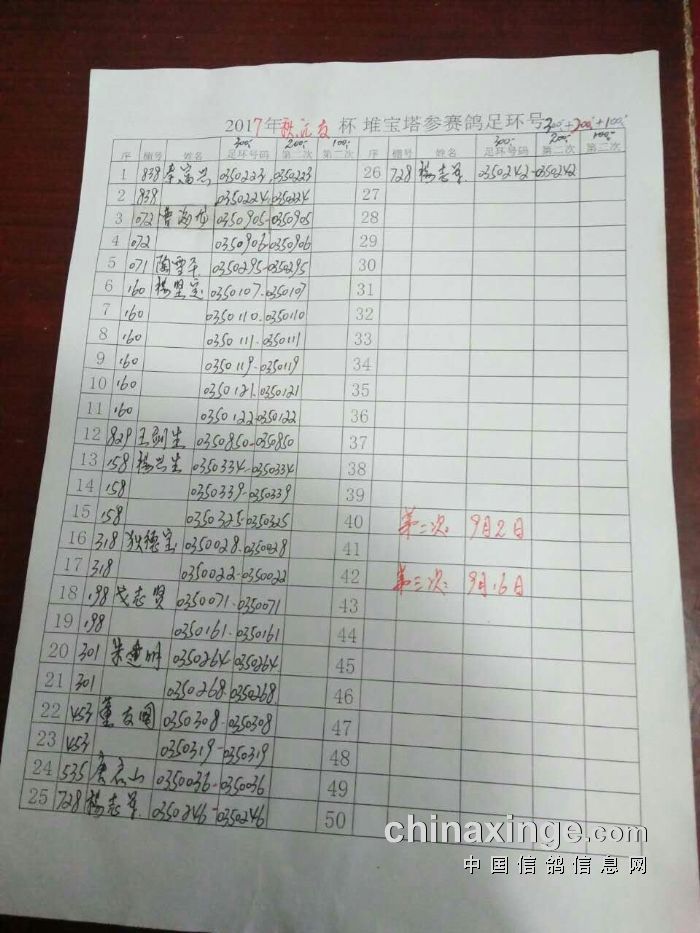 2017年秋 友 杯 堆宝塔参赛鸽足环号 300+200+100
300 200 100 300 200 100
序 棚号 姓名 足环号码 第二次 第三次 序 棚号 姓名 足环号码 第二次 第三次
1 838 李富兴 0350223 0350223 26 728 杨志军 0350242-0350242
2 838 0350224-0350224 27
3 072 曹 龙 0350905-0350905 28
4 072 0350906-0350906 29
5 071 陶雪平 0350295-0350295 30
6 160 杨坚定 0350107-0350107 31
7 160 0350110-0350110 32
8 160 0350111-0350111 33
9 160 0350119-0350119 34
10 160 0350121-0350121 35
11 160 0350122-0350122 36
12 829 王 生 0350850-0350850 37
13 158 杨兴生 0350334-0350334 38
14 158 0350339-0350339 39
15 158 0350325-0350325 40 第二次: 9月2日
16 318 狄德宝 0350028-0350028 41
17 318 0350022-0350022 42 第三次: 9月16日
18 198 戈志贤 0350071-0350071 43
19 198 0350161-0350161 44
20 301 朱 明 0350264-0350264 45
21 301 0350268-0350268 46
22 453 董友国 0350308-0350308 47
23 453 0350319-0350319 48
24 535 唐 山 0350036-0350036 49
25 728 杨志军 0350246-0350246 50
chinaxinge.com
中国信鸽信息网